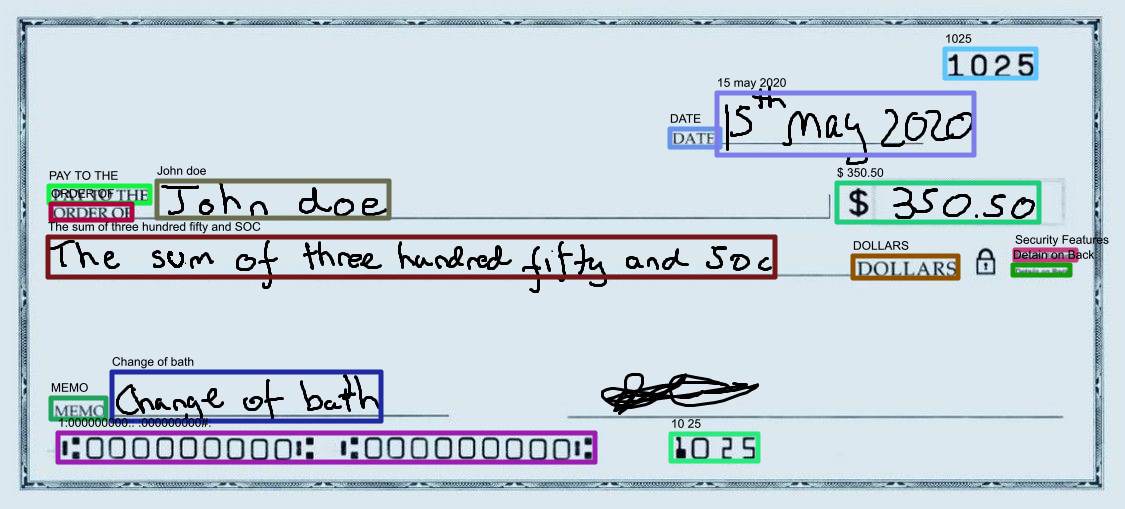 1025
1025
15 may 2020
DATE
DATE 15th May 2020
PAY TO THE
John doe
$ 350.50
ORDER OF
PAY TO THE
ORDER OF John doe
$ 350.50
The sum of three hundred fifty and SOC
The sum of three hundred fifty and 50c
DOLLARS
DOLLARS
Security Features
Detain on Back
Change of bath
MEMO
MEMO Change of bath
1:000000000:: :000000000#:
10 25
⑆000000000⑆ ⑆000000000⑆
1025